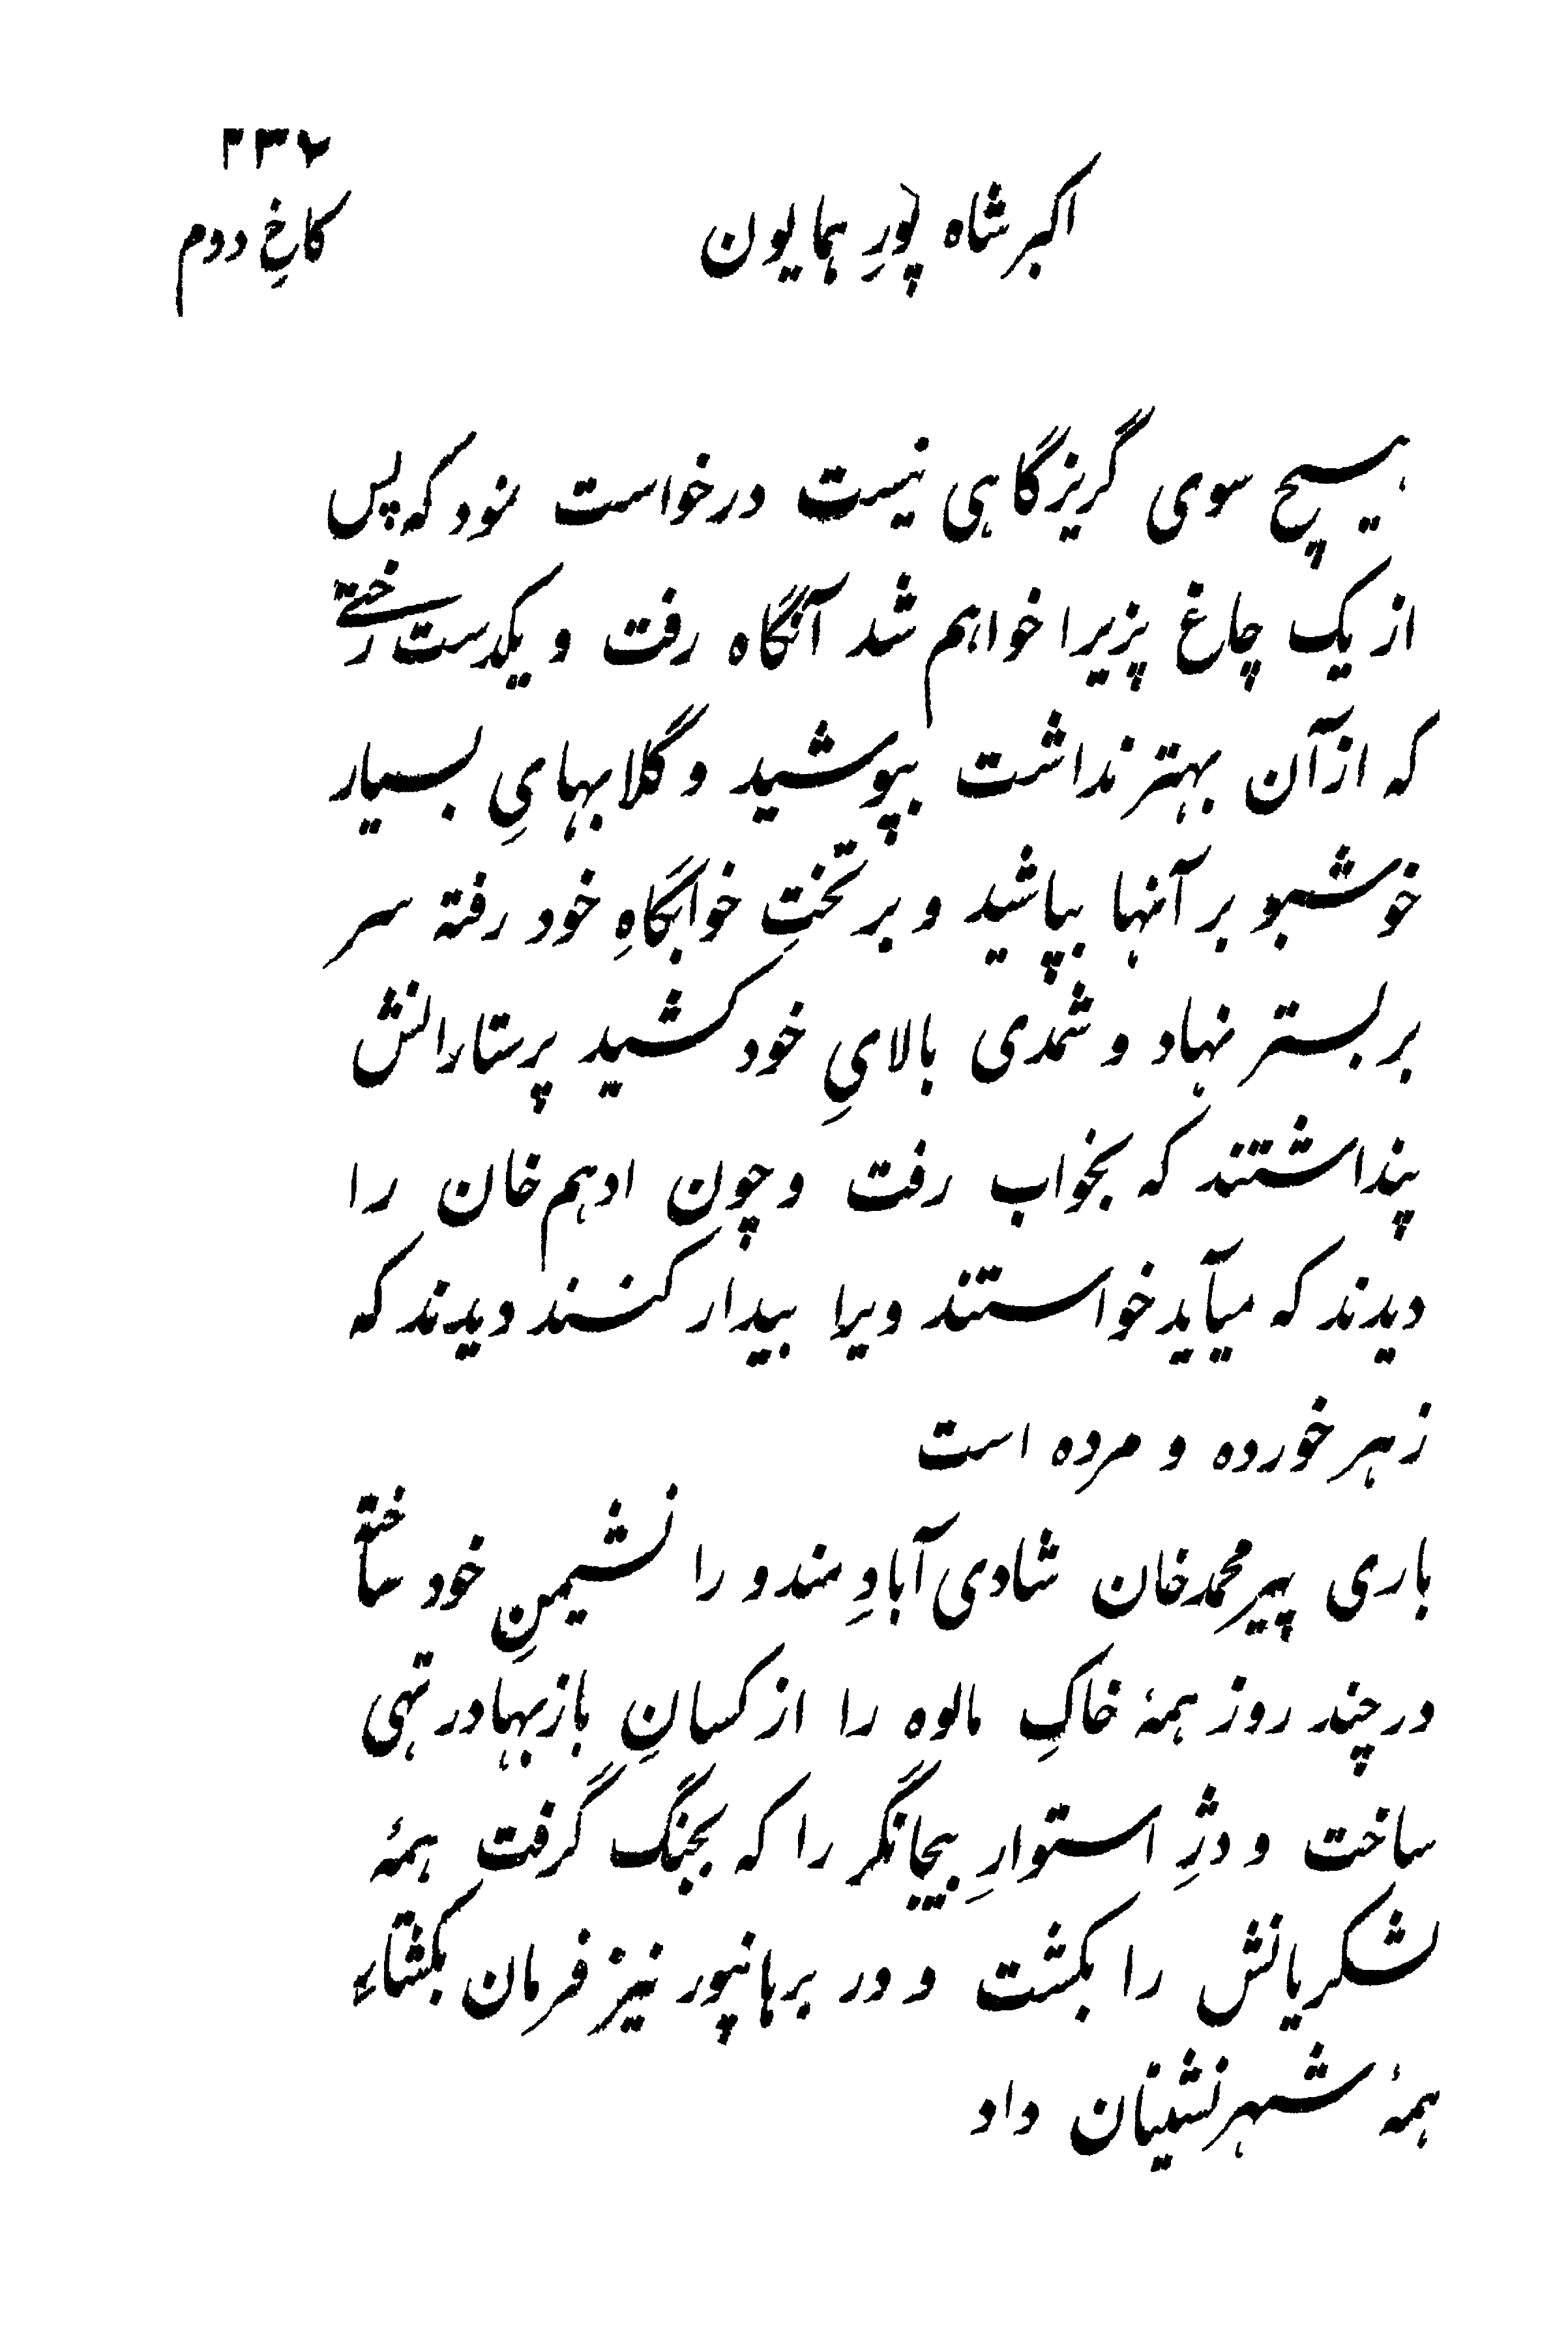 ۲۳۶
اکبر شاه پورِ همایون
کاخِ دوم
هیچ سوی گریزگاهی نیست درخواست نمود که پس
از یک چاغ پزیرا خواهم شد آنگاه رفت و یکدست رختے
که از آن بهتر نداشت بپوشید و گلابهایِ بسیار
خوشبو بر آنها بپاشید و بر تختِ خوابگاهِ خود رفته سر
بر بستر نهاد و شمدی بالایِ خود کشید پرستارانش
پنداشتند که بخواب رفت و چون ادهم خان را
دیدند که میآید خواستند ویرا بیدار کنند دیدند که
زهر خورده و مرده است
باری پیر محمد خان شادی آبادِ مندو را نشیمنِ خود ساخته
در چند روز همهٔ خاکِ مالوه را از کسانِ باز بهادر تهی
ساخت و دژِ استوارِ بیجانگر را که بجنگ گرفت همهٔ
لشکریانش را بکشت و در برهانپور نیز فرمان بکشتار
همهٔ شهر نشینان داد